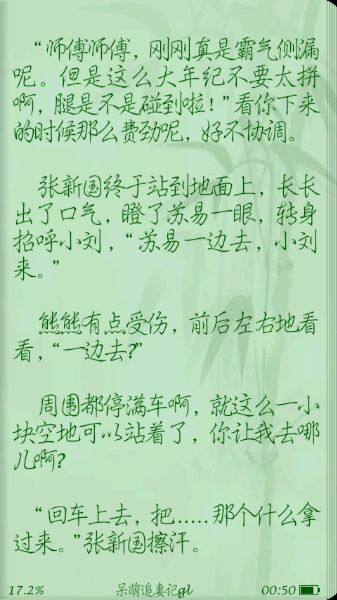 “师傅师傅，刚刚真是霸气侧漏
呢。但是这么大年纪不要太拼
啊，腿是不是碰到啦！”看你下来
的时候那么费劲呢，好不协调。
张新国终于站到地面上，长长
出了口气，瞪了苏易一眼，转身
招呼小刘，“苏易一边去，小刘
来。”
熊熊有点受伤，前后左右地看
看，“一边去?”
周围都停满车啊，就这么一小
块空地可以站着了，你让我去哪
儿啊?
“回车上去，把.....那个什么拿
过来。”张新国擦汗。
17.2% 呆萌追妻记gl 00:50